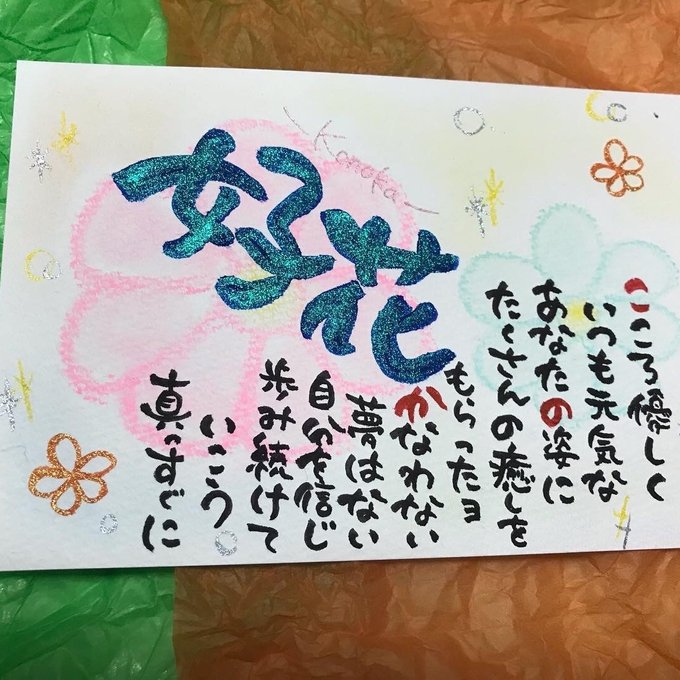 好花
Konoka
こころ優しく
いつも元気な
あなたの姿に
たくさんの癒しを
もらったヨ
かなわない
夢はない
自分を信じ
歩み続けて
いこう
真っすぐに